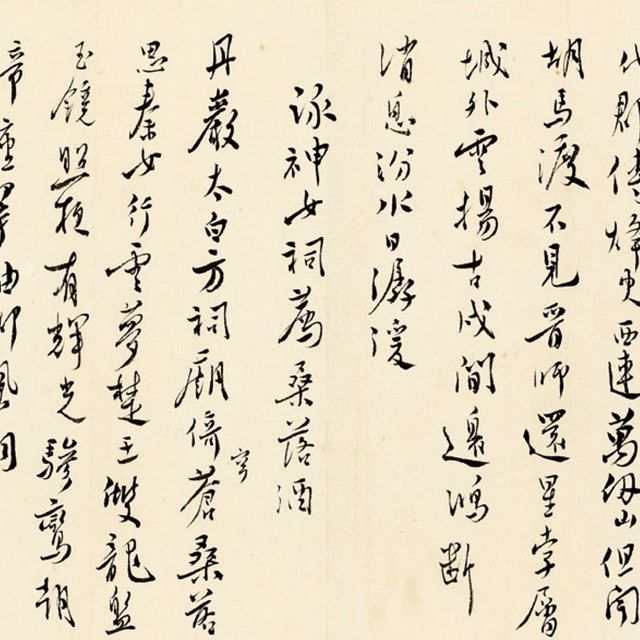 代郡傳烽火西連萬仞山但聞
胡馬渡不見晉師還星孛層
城外雲揚古戍間邊鴻斷
消息汾水日潺湲
詠神女祠薦桑落酒
丹嚴太白方祠廟倚蒼桑落
穹
思秦女行雲夢楚王雙龍盤
玉鏡照有輝光驂鸞朝
帝